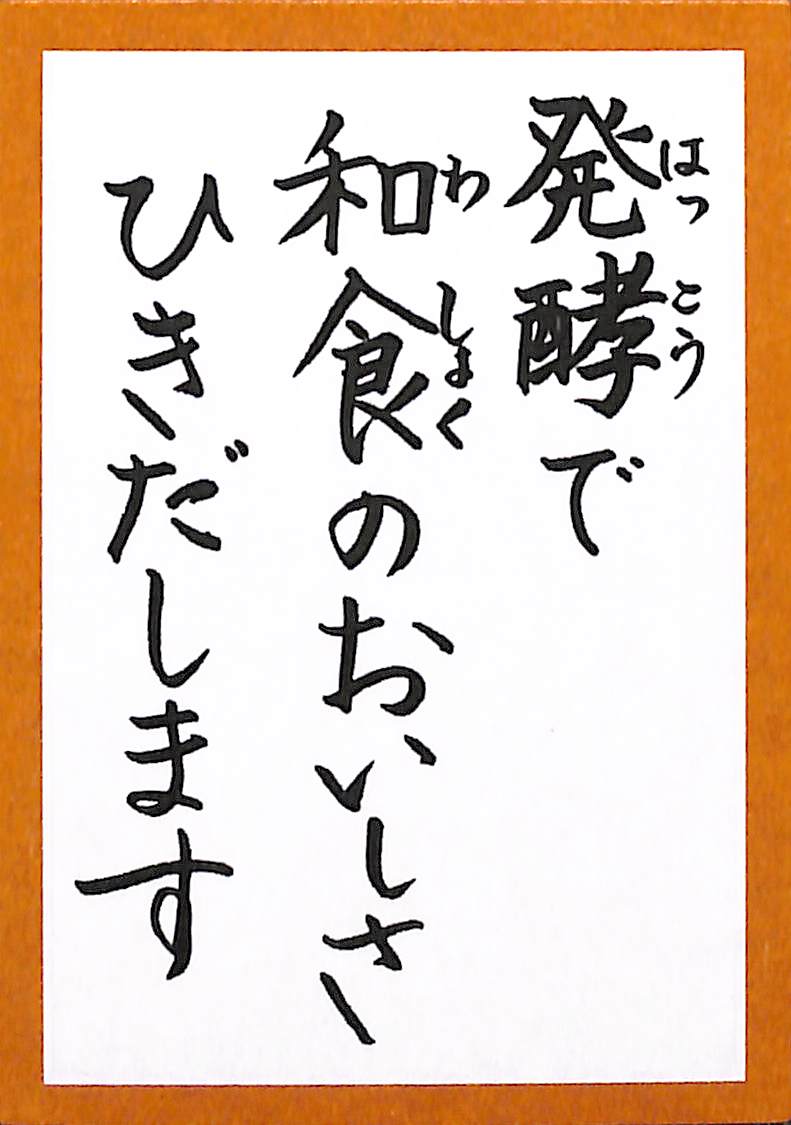 発酵で
はっこう
和食のおいしさ
わしょく
ひきだします